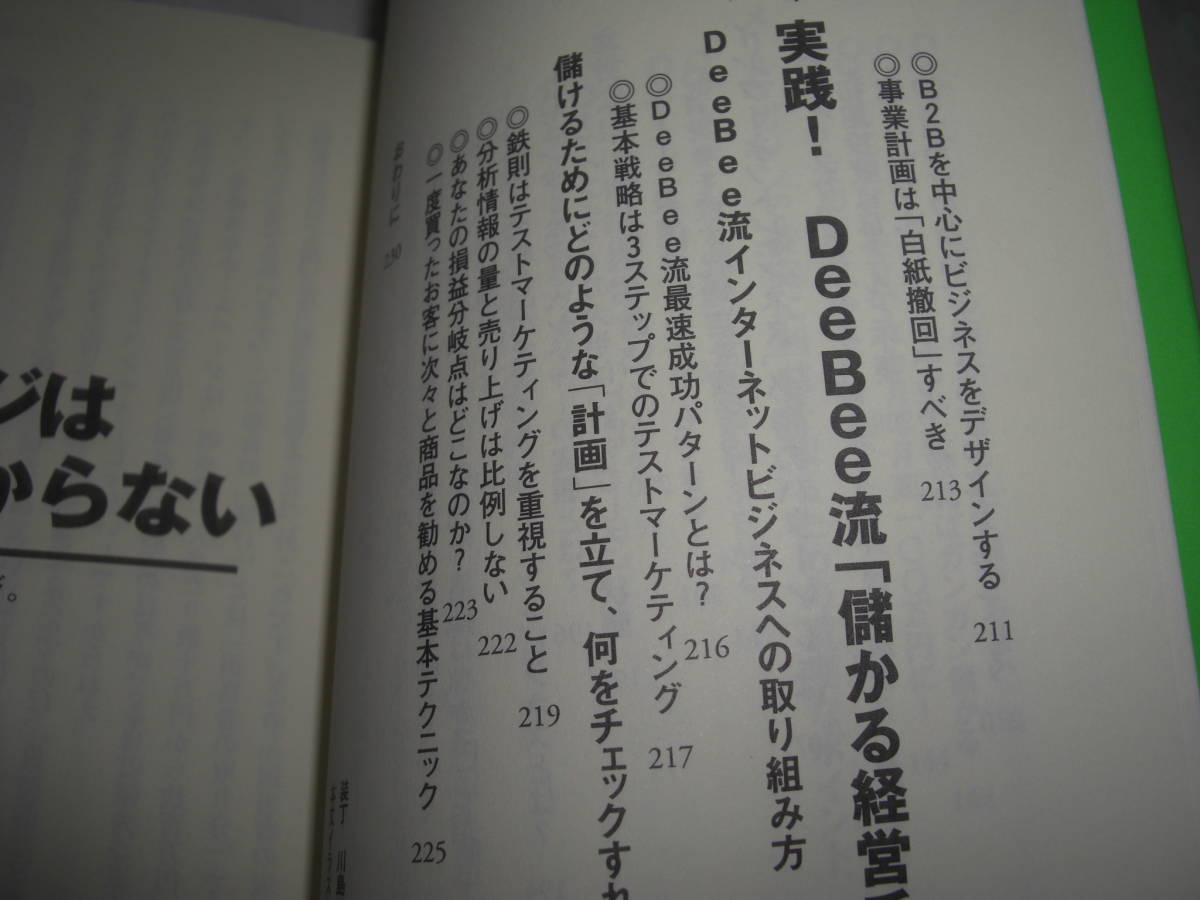 ◎B2Bを中心にビジネスをデザインする 211
◎事業計画は「白紙撤回」すべき 213
実践! DeeBee流「儲かる経営
DeeBee流インターネットビジネスへの取り組み方
◎DeeBee流最速成功パターンとは? 216
◎基本戦略は3ステップでのテストマーケティング 217
儲けるためにどのような「計画」を立て、何をチェックすれ
◎鉄則はテストマーケティングを重視すること 219
◎分析情報の量と売り上げは比例しない 222
◎あなたの損益分岐点はどこなのか? 223
◎一度買ったお客に次々と商品を勧める基本テクニック 225
おわりに 230
装丁 川島
本文イラス
ジは
からない